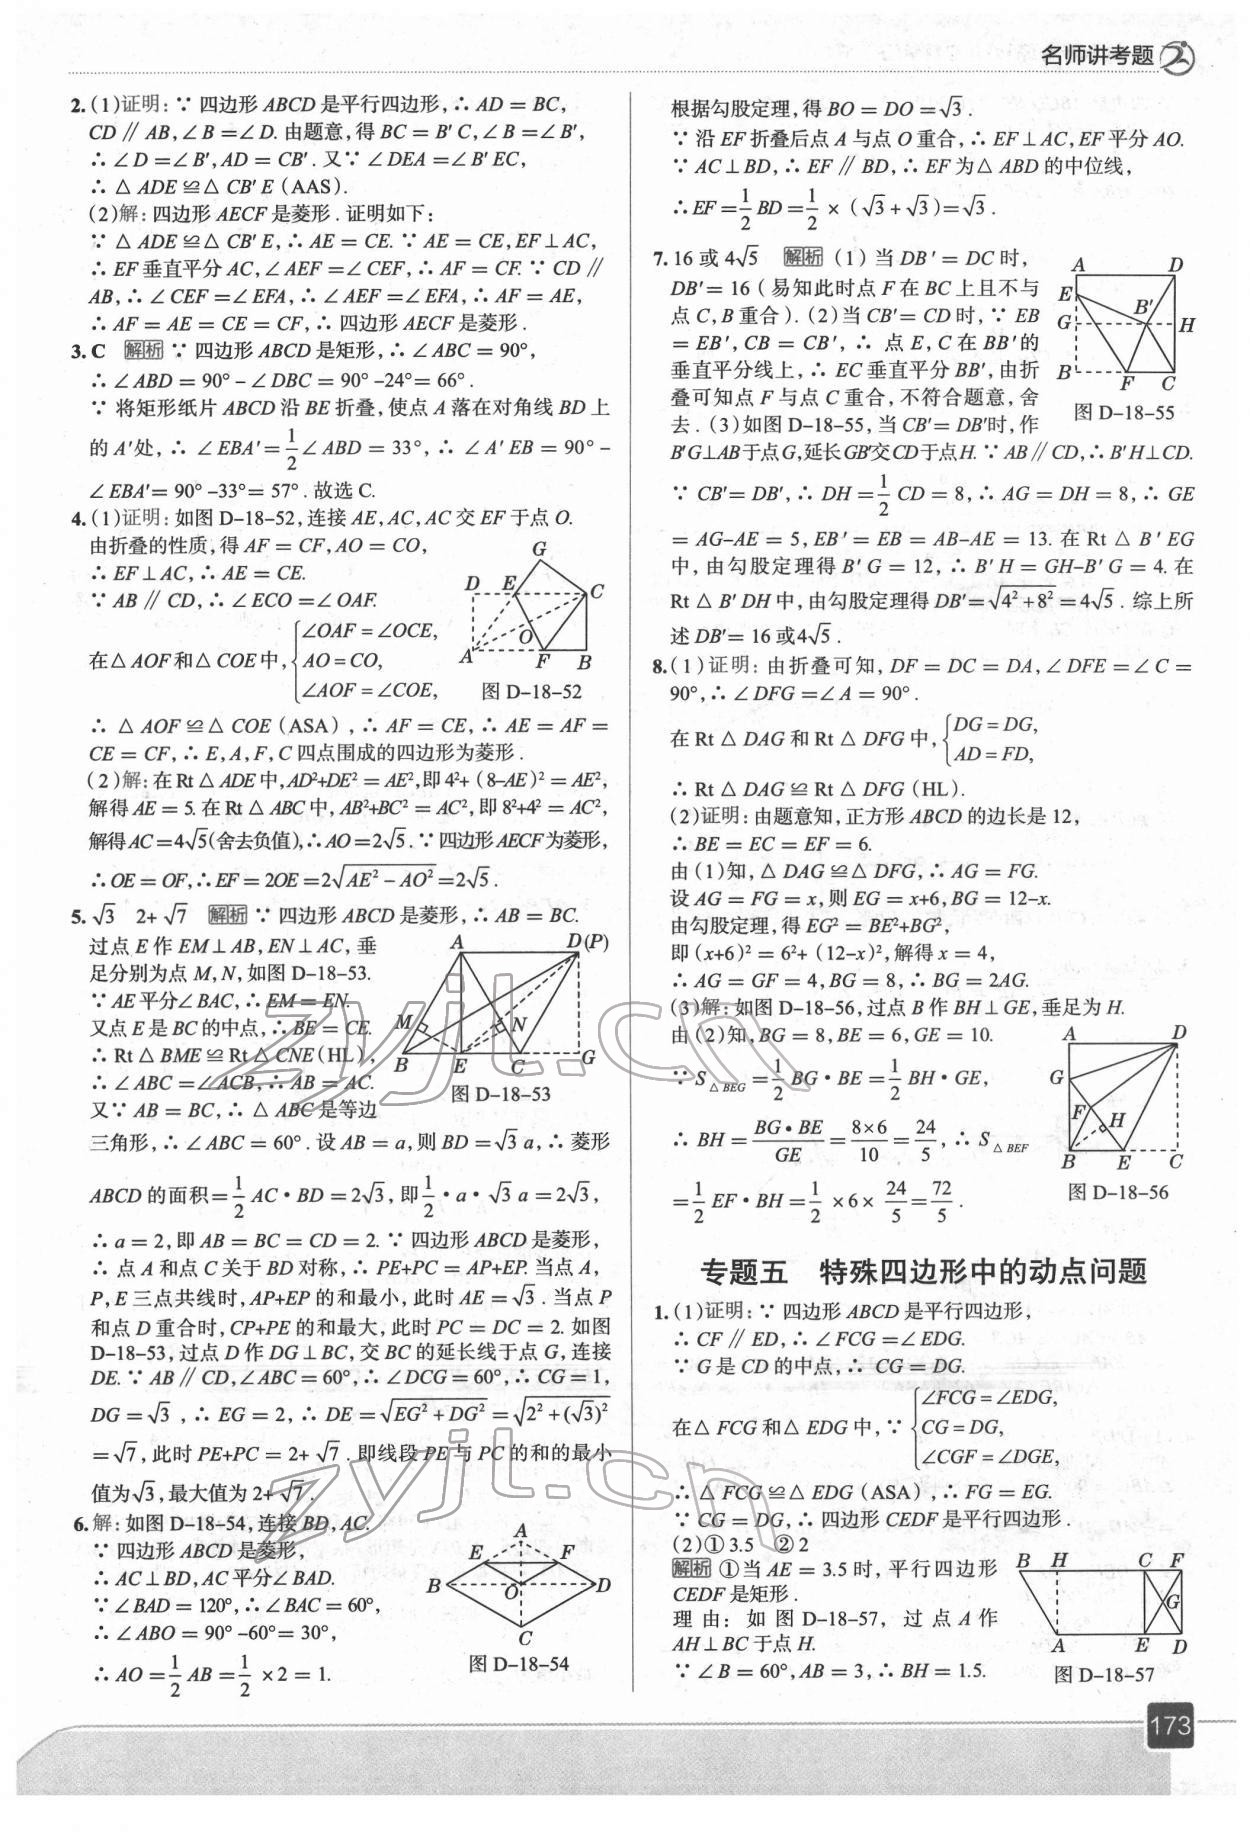 名师讲考题
2.(1)证明:∵ 四边形 ABCD 是平行四边形,∴ AD = BC,
CD // AB,∠B =∠D. 由题意,得 BC = B′C,∠B =∠B′,
∴ ∠D =∠B′,AD = CB′. 又∵ ∠DEA =∠B′EC,
∴ △ADE ≌△CB′E (AAS).
(2)解:四边形 AECF 是菱形. 证明如下:
∵ △ADE ≌△CB′E,∴ AE = CE. ∵ AE = CE,EF⊥AC,
∴ EF 垂直平分 AC,∠AEF =∠CEF,∴ AF = CF. ∵ CD //
AB,∴ ∠CEF =∠EFA,∴ ∠AEF =∠EFA,∴ AF = AE,
∴ AF = AE = CE = CF,∴ 四边形 AECF 是菱形.
3. C 解析 ∵ 四边形 ABCD 是矩形,∴ ∠ABC = 90°,
∴ ∠ABD = 90° – ∠DBC = 90° –24°= 66°.
∵ 将矩形纸片 ABCD 沿 BE 折叠,使点 A 落在对角线 BD 上
的 A′处,∴ ∠EBA′= 1/2 ∠ABD = 33°,∴ ∠A′EB = 90° –
∠EBA′= 90° –33°= 57°. 故选 C.
4.(1)证明:如图 D–18–52,连接 AE,AC,AC 交 EF 于点 O.
由折叠的性质,得 AF = CF,AO = CO,
∴ EF⊥AC,∴ AE = CE.
∵ AB // CD,∴ ∠ECO =∠OAF.
在△AOF 和△COE 中,{∠OAF =∠OCE,
AO = CO,
∠AOF =∠COE,
G
D E C
O
A F B
图 D–18–52
∴ △AOF ≌△COE (ASA),∴ AF = CE,∴ AE = AF =
CE = CF,∴ E,A,F,C 四点围成的四边形为菱形.
(2)解:在 Rt△ADE 中,AD²+DE² = AE²,即 4²+ (8–AE)² = AE²,
解得 AE = 5. 在 Rt△ABC 中,AB²+BC² = AC²,即 8²+4² = AC²,
解得 AC = 4√5 (舍去负值),∴ AO = 2√5. ∵ 四边形 AECF 为菱形,
∴ OE = OF,∴ EF = 2OE =2√(AE² – AO²) =2√5.
5. √3 2+ √7 解析 ∵ 四边形 ABCD 是菱形,∴ AB = BC.
过点 E 作 EM⊥AB,EN⊥AC,垂
足分别为点 M,N,如图 D–18–53.
∵ AE 平分∠BAC,∴ EM = EN.
又点 E 是 BC 的中点,∴ BE = CE.
∴ Rt△BME ≌ Rt△CNE (HL),
∴ ∠ABC =∠ACB,∴ AB = AC.
又∵ AB = BC,∴ △ABC 是等边
A D(P)
M N
B E C G
图 D–18–53
三角形,∴ ∠ABC = 60°. 设 AB = a,则 BD = √3 a,∴ 菱形
ABCD 的面积= 1/2 AC•BD = 2√3,即 1/2 •a• √3 a = 2√3,
∴ a = 2,即 AB = BC = CD = 2. ∵ 四边形 ABCD 是菱形,
∴ 点 A 和点 C 关于 BD 对称,∴ PE+PC = AP+EP. 当点 A,
P,E 三点共线时,AP+EP 的和最小,此时 AE = √3. 当点 P
和点 D 重合时,CP+PE 的和最大,此时 PC = DC = 2. 如图
D–18–53,过点 D 作 DG⊥BC,交 BC 的延长线于点 G,连接
DE. ∵ AB // CD,∠ABC = 60°,∴ ∠DCG = 60°,∴ CG = 1,
DG = √3,∴ EG = 2,∴ DE = √(EG² + DG²) = √(2² +(√3)²)
= √7,此时 PE+PC = 2+ √7. 即线段 PE 与 PC 的和的最小
值为√3,最大值为 2+ √7.
6. 解:如图 D–18–54,连接 BD,AC.
∵ 四边形 ABCD 是菱形,
∴ AC⊥BD,AC 平分∠BAD.
∵ ∠BAD = 120°,∴ ∠BAC = 60°,
∴ ∠ABO = 90° –60°= 30°,
∴ AO = 1/2 AB = 1/2 ×2 = 1.
A
E F
B O D
C
图 D–18–54
根据勾股定理,得 BO = DO = √3.
∵ 沿 EF 折叠后点 A 与点 O 重合,∴ EF⊥AC,EF 平分 AO.
∵ AC⊥BD,∴ EF // BD,∴ EF 为△ABD 的中位线,
∴ EF = 1/2 BD = 1/2 × (√3 + √3) = √3.
7. 16 或 4√5 解析 (1) 当 DB′ = DC 时,
DB′= 16 (易知此时点 F 在 BC 上且不与
点 C,B 重合). (2)当 CB′= CD 时,∵ EB
= EB′,CB = CB′,∴ 点 E,C 在 BB′的
垂直平分线上,∴ EC 垂直平分 BB′,由折
叠可知点 F 与点 C 重合,不符合题意,舍
去. (3)如图 D–18–55,当 CB′= DB′时,作
A D
E
B′
G H
B F C
图 D–18–55
B′G⊥AB于点G,延长GB′交CD于点H. ∵ AB // CD,∴ B′H⊥CD.
∵ CB′= DB′,∴ DH = 1/2 CD = 8,∴ AG = DH = 8,∴ GE
= AG–AE = 5,EB′ = EB = AB–AE = 13. 在 Rt△B′EG
中,由勾股定理得 B′G = 12,∴ B′H = GH–B′G = 4. 在
Rt△B′DH 中,由勾股定理得 DB′= √(4² + 8²) = 4√5. 综上所
述 DB′= 16 或 4√5.
8.(1)证明:由折叠可知,DF = DC = DA,∠DFE =∠C =
90°,∴ ∠DFG =∠A = 90°.
在 Rt△DAG 和 Rt△DFG 中,{DG = DG,
AD = FD,
∴ Rt△DAG ≌ Rt△DFG (HL).
(2)证明:由题意知,正方形 ABCD 的边长是 12,
∴ BE = EC = EF = 6.
由(1)知,△DAG ≌△DFG,∴ AG = FG.
设 AG = FG = x,则 EG = x+6,BG = 12–x.
由勾股定理,得 EG² = BE²+BG²,
即 (x+6)² = 6²+ (12–x)²,解得 x = 4,
∴ AG = GF = 4,BG = 8,∴ BG = 2AG.
(3)解:如图 D–18–56,过点 B 作 BH⊥GE,垂足为 H.
由(2)知,BG = 8,BE = 6,GE = 10.
∵ S△BEG = 1/2 BG•BE = 1/2 BH•GE,
∴ BH = BG•BE/GE = 8×6/10 = 24/5,∴ S△BEF
= 1/2 EF•BH = 1/2 ×6× 24/5 = 72/5.
A D
G
F
H
B E C
图 D–18–56
专题五 特殊四边形中的动点问题
1.(1)证明:∵ 四边形 ABCD 是平行四边形,
∴ CF // ED,∴ ∠FCG =∠EDG.
∵ G 是 CD 的中点,∴ CG = DG.
在△FCG 和△EDG 中,∵ {∠FCG =∠EDG,
CG = DG,
∠CGF =∠DGE,
∴ △FCG ≌△EDG (ASA),∴ FG = EG.
∵ CG = DG,∴ 四边形 CEDF 是平行四边形.
(2)①3.5 ②2
解析 ①当 AE = 3.5 时,平行四边形
CEDF 是矩形.
理由:如图 D–18–57,过点 A 作
AH⊥BC 于点 H.
∵ ∠B = 60°,AB = 3,∴ BH = 1.5.
B H C F
G
A E D
图 D–18–57
173
zyjl.cn
zyjl.cn